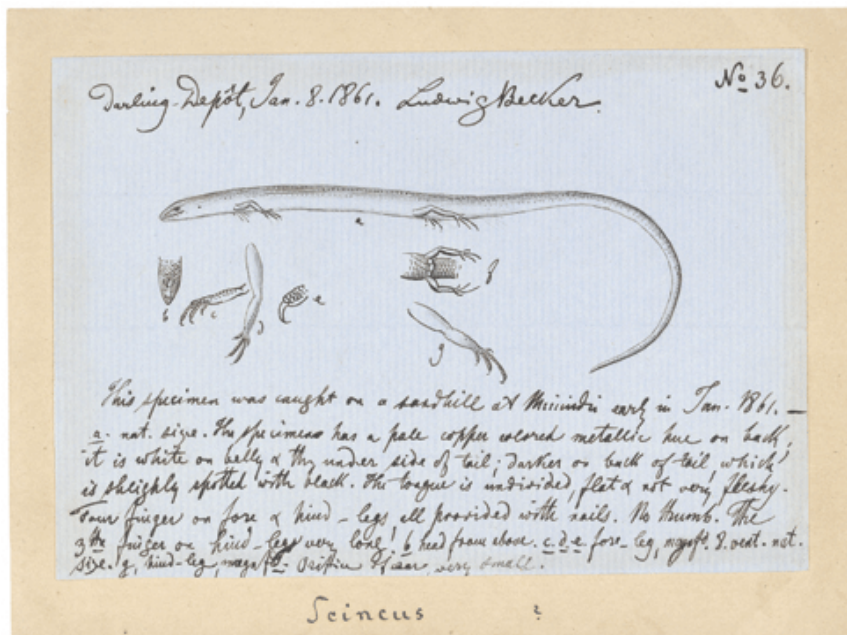 No 36.
Darling-Depôt, Jan. 8. 1861. Ludwig Becker.
a
b c d e f
g
This specimen was caught on a sandhill at early in Jan. 1861. —
a. nat. size. The specimen has a pale copper colored metallic hue on back;
it is white on belly & the under side of tail; darker on back of tail, which
is slighly spotted with black. The tongue is undivided, flat & not very fleshy.
Four finger on fore & hind-legs all provided with nails. No thumb. The
3th finger on hind-legs very long! b head from above. c. d. e fore-leg, magnft. vent. nat.
size. g, hind-leg, magnft. Orifice of ear very small.
Scincus ?